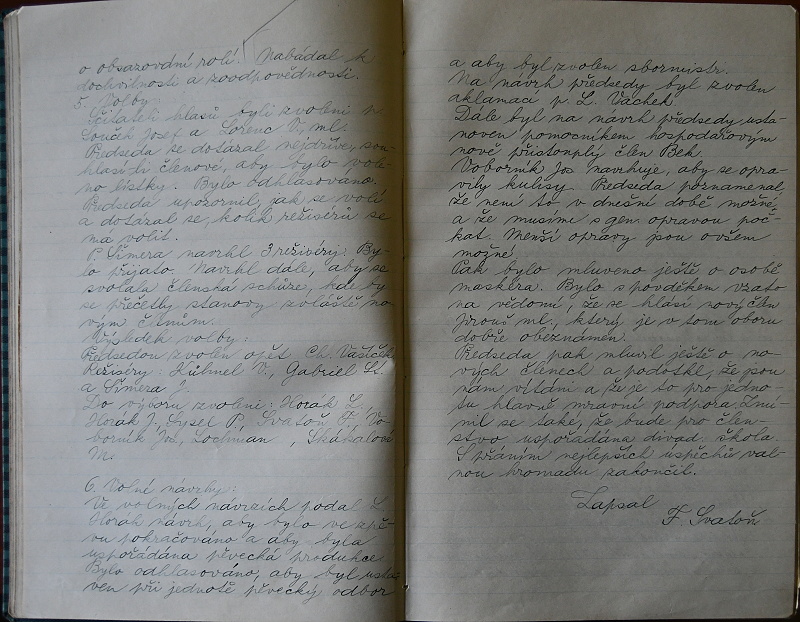 o obsazování rolí. Nabádal k
dochvilnosti a zodpovědnosti.
5. Volby:
Sčitateli hlasů byli zvoleni p.
Souček Josef a Lorenc V. ml.
Předseda se dotázal nejdříve, sou-
hlasí-li členové, aby bylo vole-
no lístky. Bylo odhlasováno.
Předseda upozornil, jak se volí
a dotázal se, kolik režisérů se
má volit.
P. Šimera navrhl 3 režiséry. By-
lo přijato. Navrhl dále, aby se
svolala členská schůze, kde by
se přečetly stanovy zvláště no-
vým členům.
Výsledek volby:
Předsedou zvolen opět Ch. Vašíček
Režiséry: Kühnel V., Gabriel St.
a Šimera J.
Do výboru zvoleni: Horák L.
Horák J., Sysel P., Svatoň F., Vo-
borník Jos., Lochman , Skákalová
M.
6. Volní návrhy:
Ve volných návrzích podal L.
Horák návrh, aby bylo ve zpě-
vu pokračováno a aby byla
uspořádána pěvecká produkce.
Bylo odhlasováno, aby byl usta-
ven při jednotě pěvecký odbor
a aby byl zvolen sbormistr.
Na návrh předsedy byl zvolen
aklamací p. L. Vachek.
Dále byl na návrh předsedy usta-
noven pomocníkem hospodářovým
nově přistouplý člen Bek.
Voborník Jos. navrhuje, aby se opra-
vily kulisy. Předseda poznamenal,
že není to v dnešní době možné,
a že musíme s gen. opravou poč-
kat. Menší opravy jsou ovšem
možné.
Pak bylo mluveno ještě o osobě
maskéra. Bylo s povděkem vzato
na vědomí, že se hlásí nový člen
Jirouš ml., který je v tom oboru
dobře obeznámen.
Předseda pak mluvil ještě o no-
vých členech a podotkl, že jsou
nám vítáni a že je to pro jedno-
tu hlavně mravní podpora. Zmí-
nil se také, že bude pro člen-
stvo uspořádána divad. škola.
S přáním nejlepších úspěchů val-
nou hromadu zakončil.
Zapsal
F. Svatoň